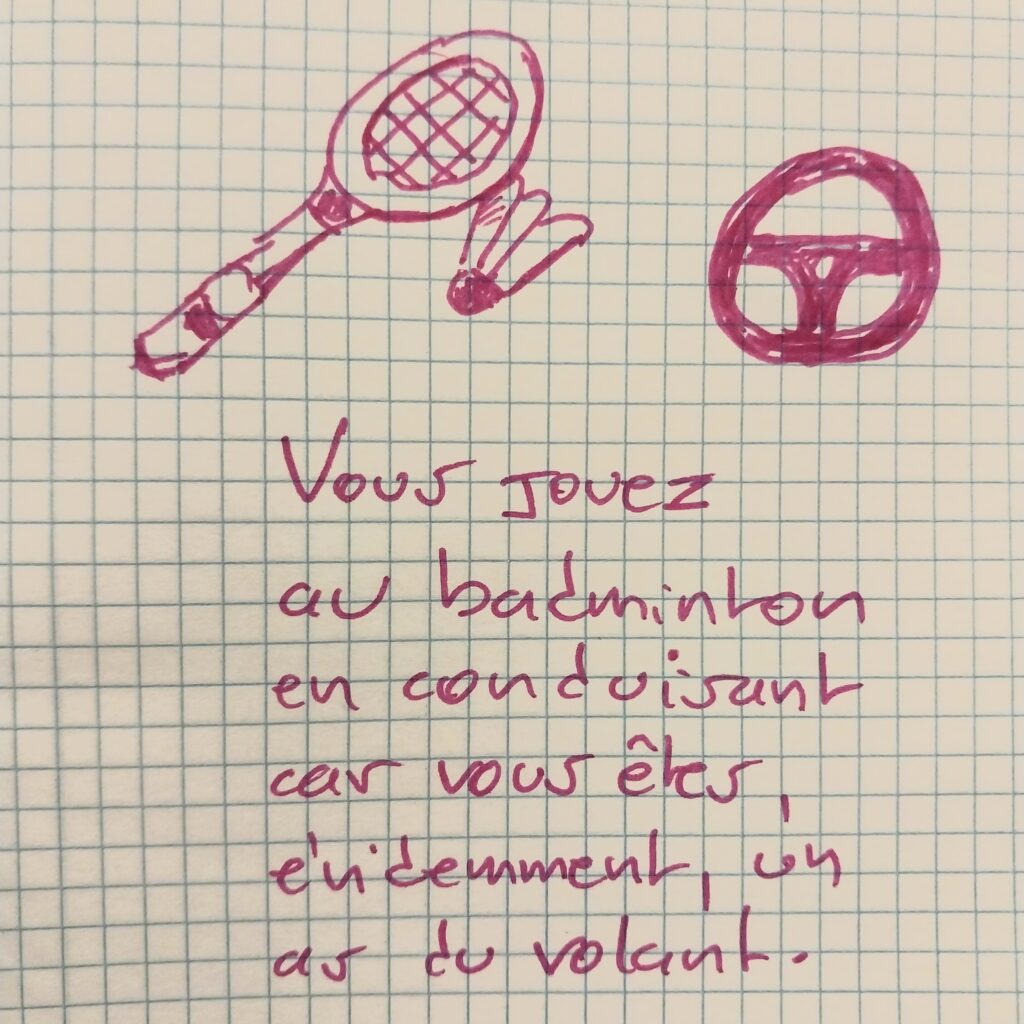 Vous jouez
au badminton
en conduisant
car vous êtes,
évidemment, un
as du volant.